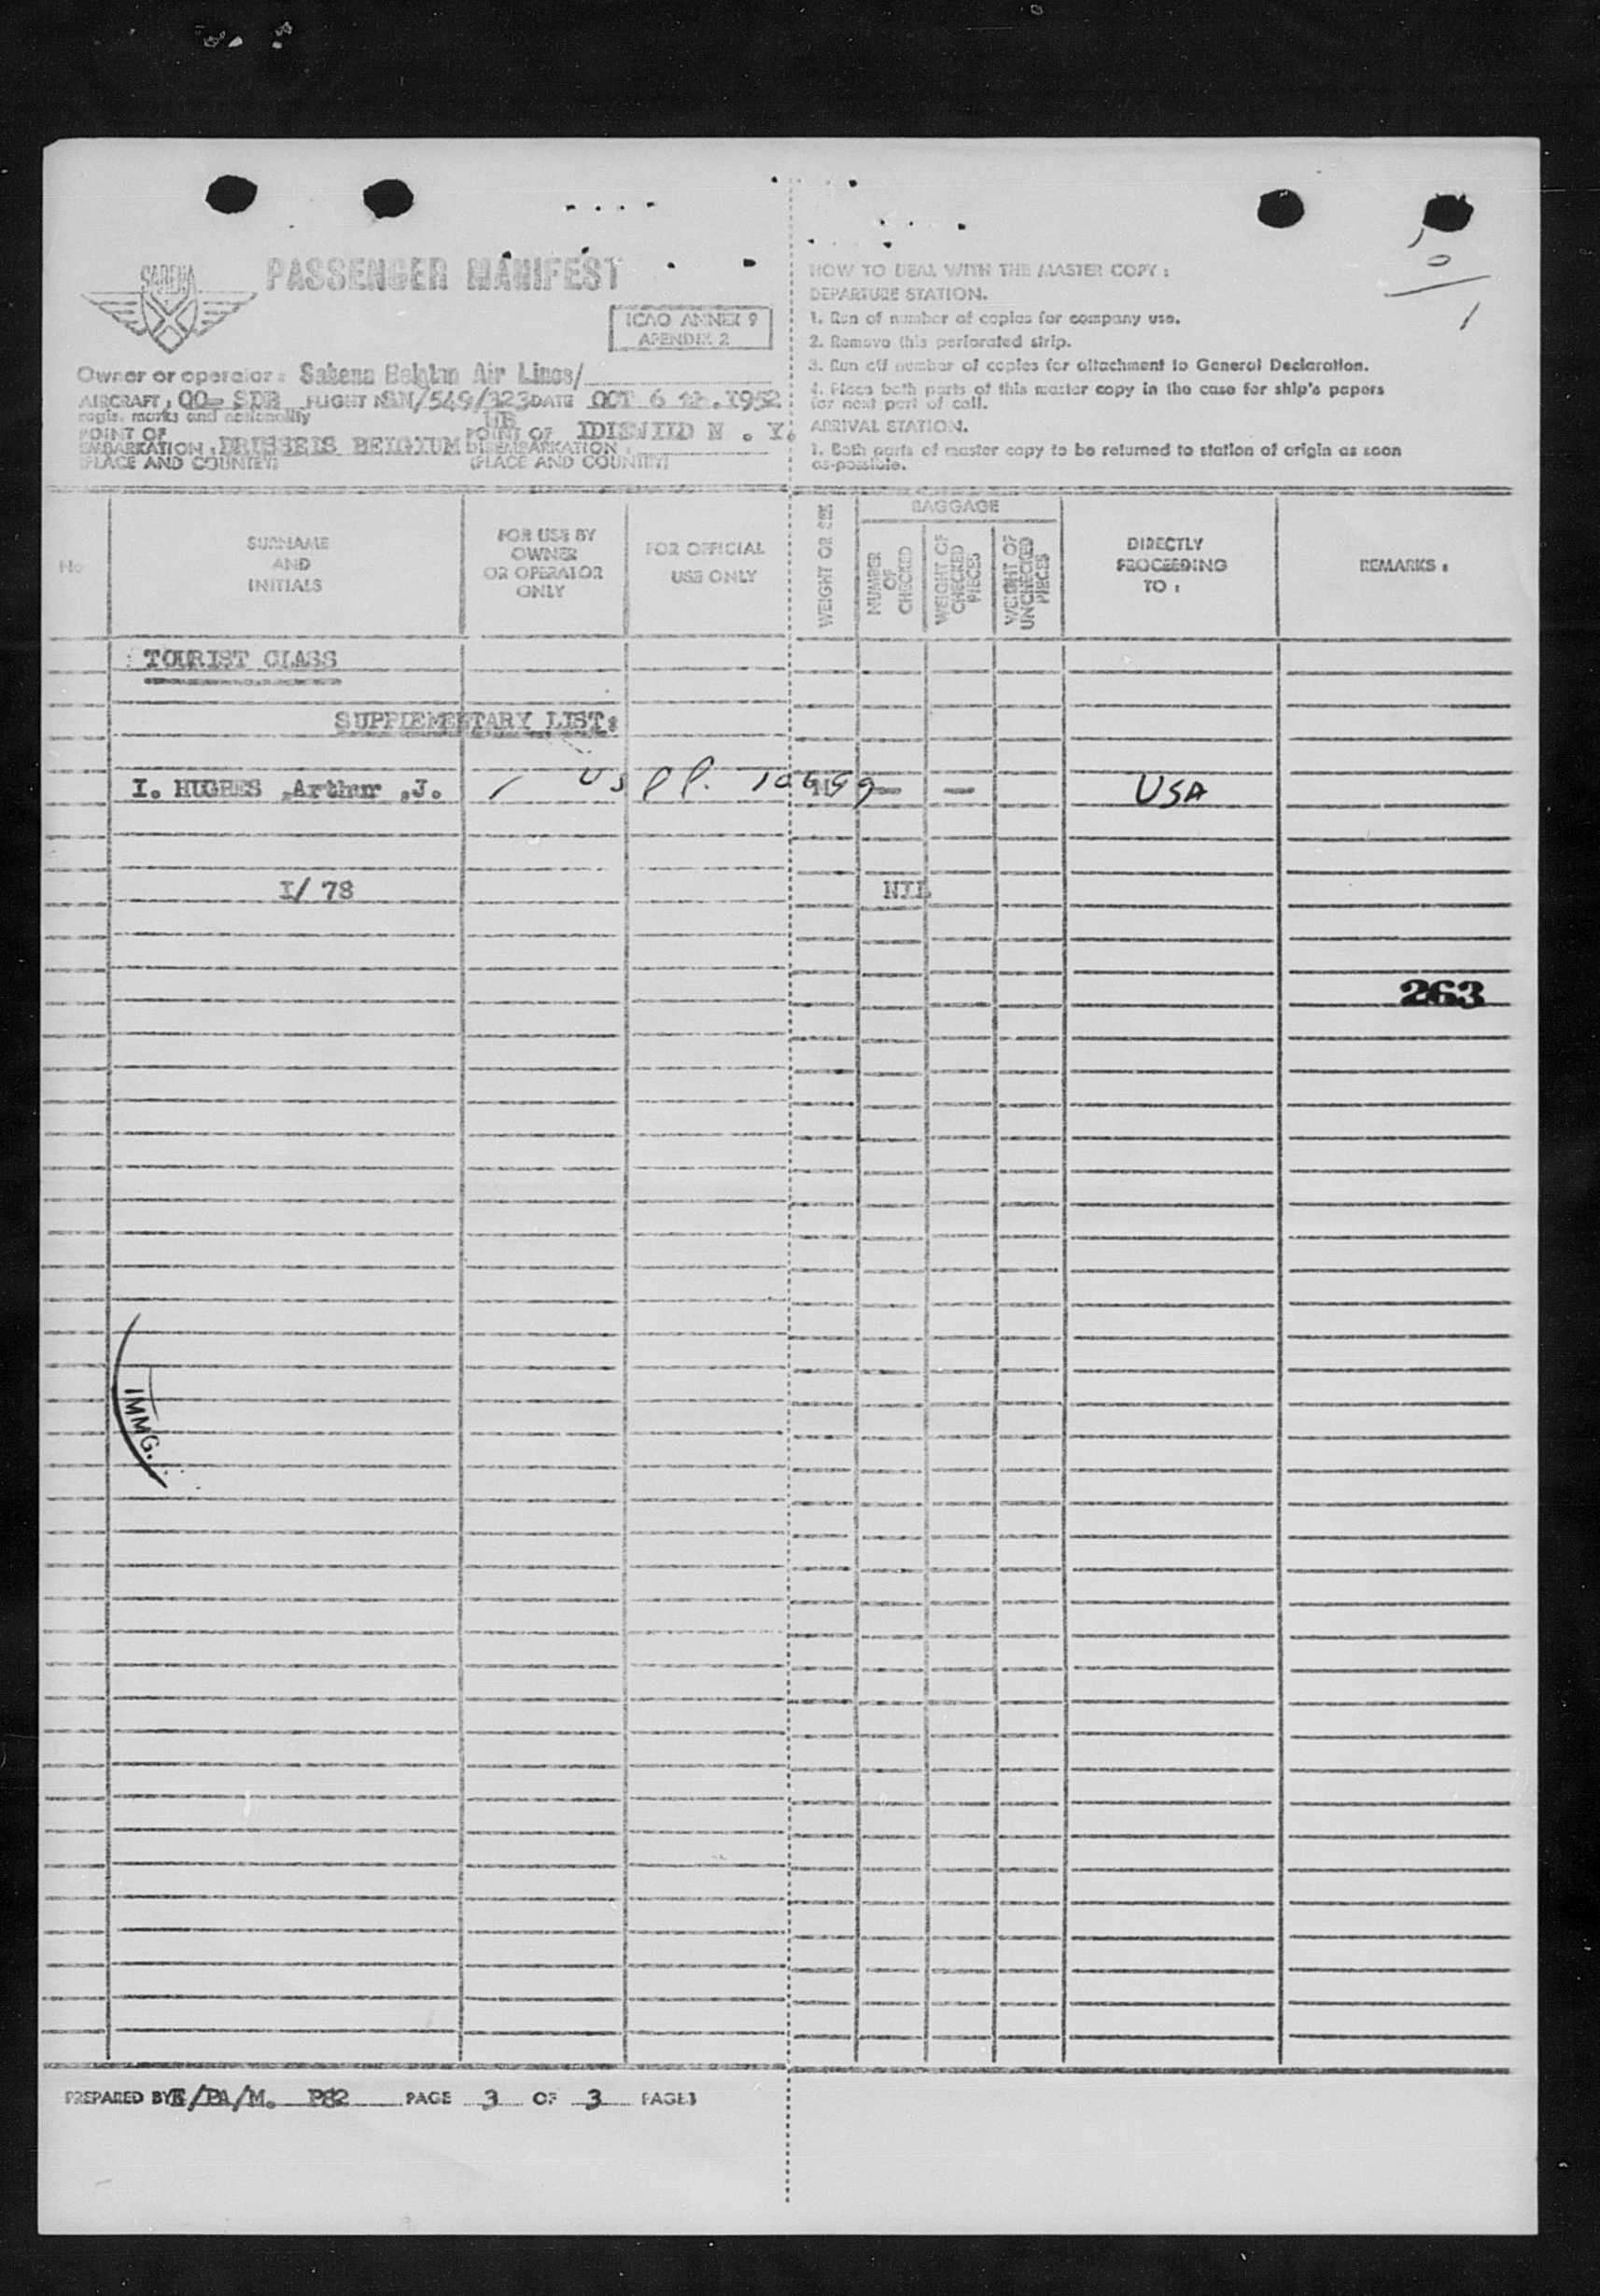 SABENA
PASSENGER MANIFEST
ICAO ANNEX 9
APENDIX 2
Owner or operator : Sabena Belgian Air Lines/
AIRCRAFT : OO- SDR FLIGHT N SN/549/323 DATE OCT 6 th.1952
regis. marks and nationality
POINT OF EMBARKATION : BRUSSELS BELGIUM POINT OF DISEMBARKATION : IDLEWILD N . Y.
(PLACE AND COUNTRY) (PLACE AND COUNTRY)
HOW TO DEAL WITH THE MASTER COPY :
DEPARTURE STATION.
1. Run of number of copies for company use.
2. Remove this perforated strip.
3. Run off number of copies for attachment to General Declaration.
4. Places both parts of this master copy in the case for ship's papers
for next port of call.
ARRIVAL STATION.
1. Both parts of master copy to be returned to station of origin as soon
as-possible.
0
1
No
SURNAME
AND
INITIALS
FOR USE BY
OWNER
OR OPERATOR
ONLY
FOR OFFICIAL
USE ONLY
WEIGHT OR SEX
BAGGAGE
NUMBER
OF
CHECKED
WEIGHT OF
CHECKED
PIECES
WEIGHT OF
UNCHECKED
PIECES
DIRECTLY
PROCEEDING
TO :
REMARKS :
TOURIST CLASS
SUPPLEMENTARY LIST:
I. HUGHES ,Arthur ,J. / US PP. — — USA
I/ 78 NIL
263
IMMG.
PREPARED BY E/PA/M. P82 PAGE 3 OF 3 PAGES